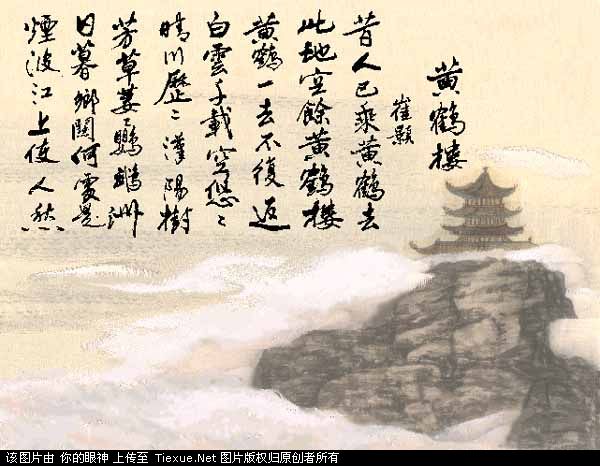 黄鶴樓
崔顥
昔人已乘黄鶴去
此地空餘黄鶴樓
黄鶴一去不復返
白雲千載空悠〻
晴川歷〻漢陽樹
芳草萋〻鸚鵡洲
日暮鄉關何處是
煙波江上使人愁
该图片由 你的眼神 上传至 Tiexue.Net 图片版权归原创者所有